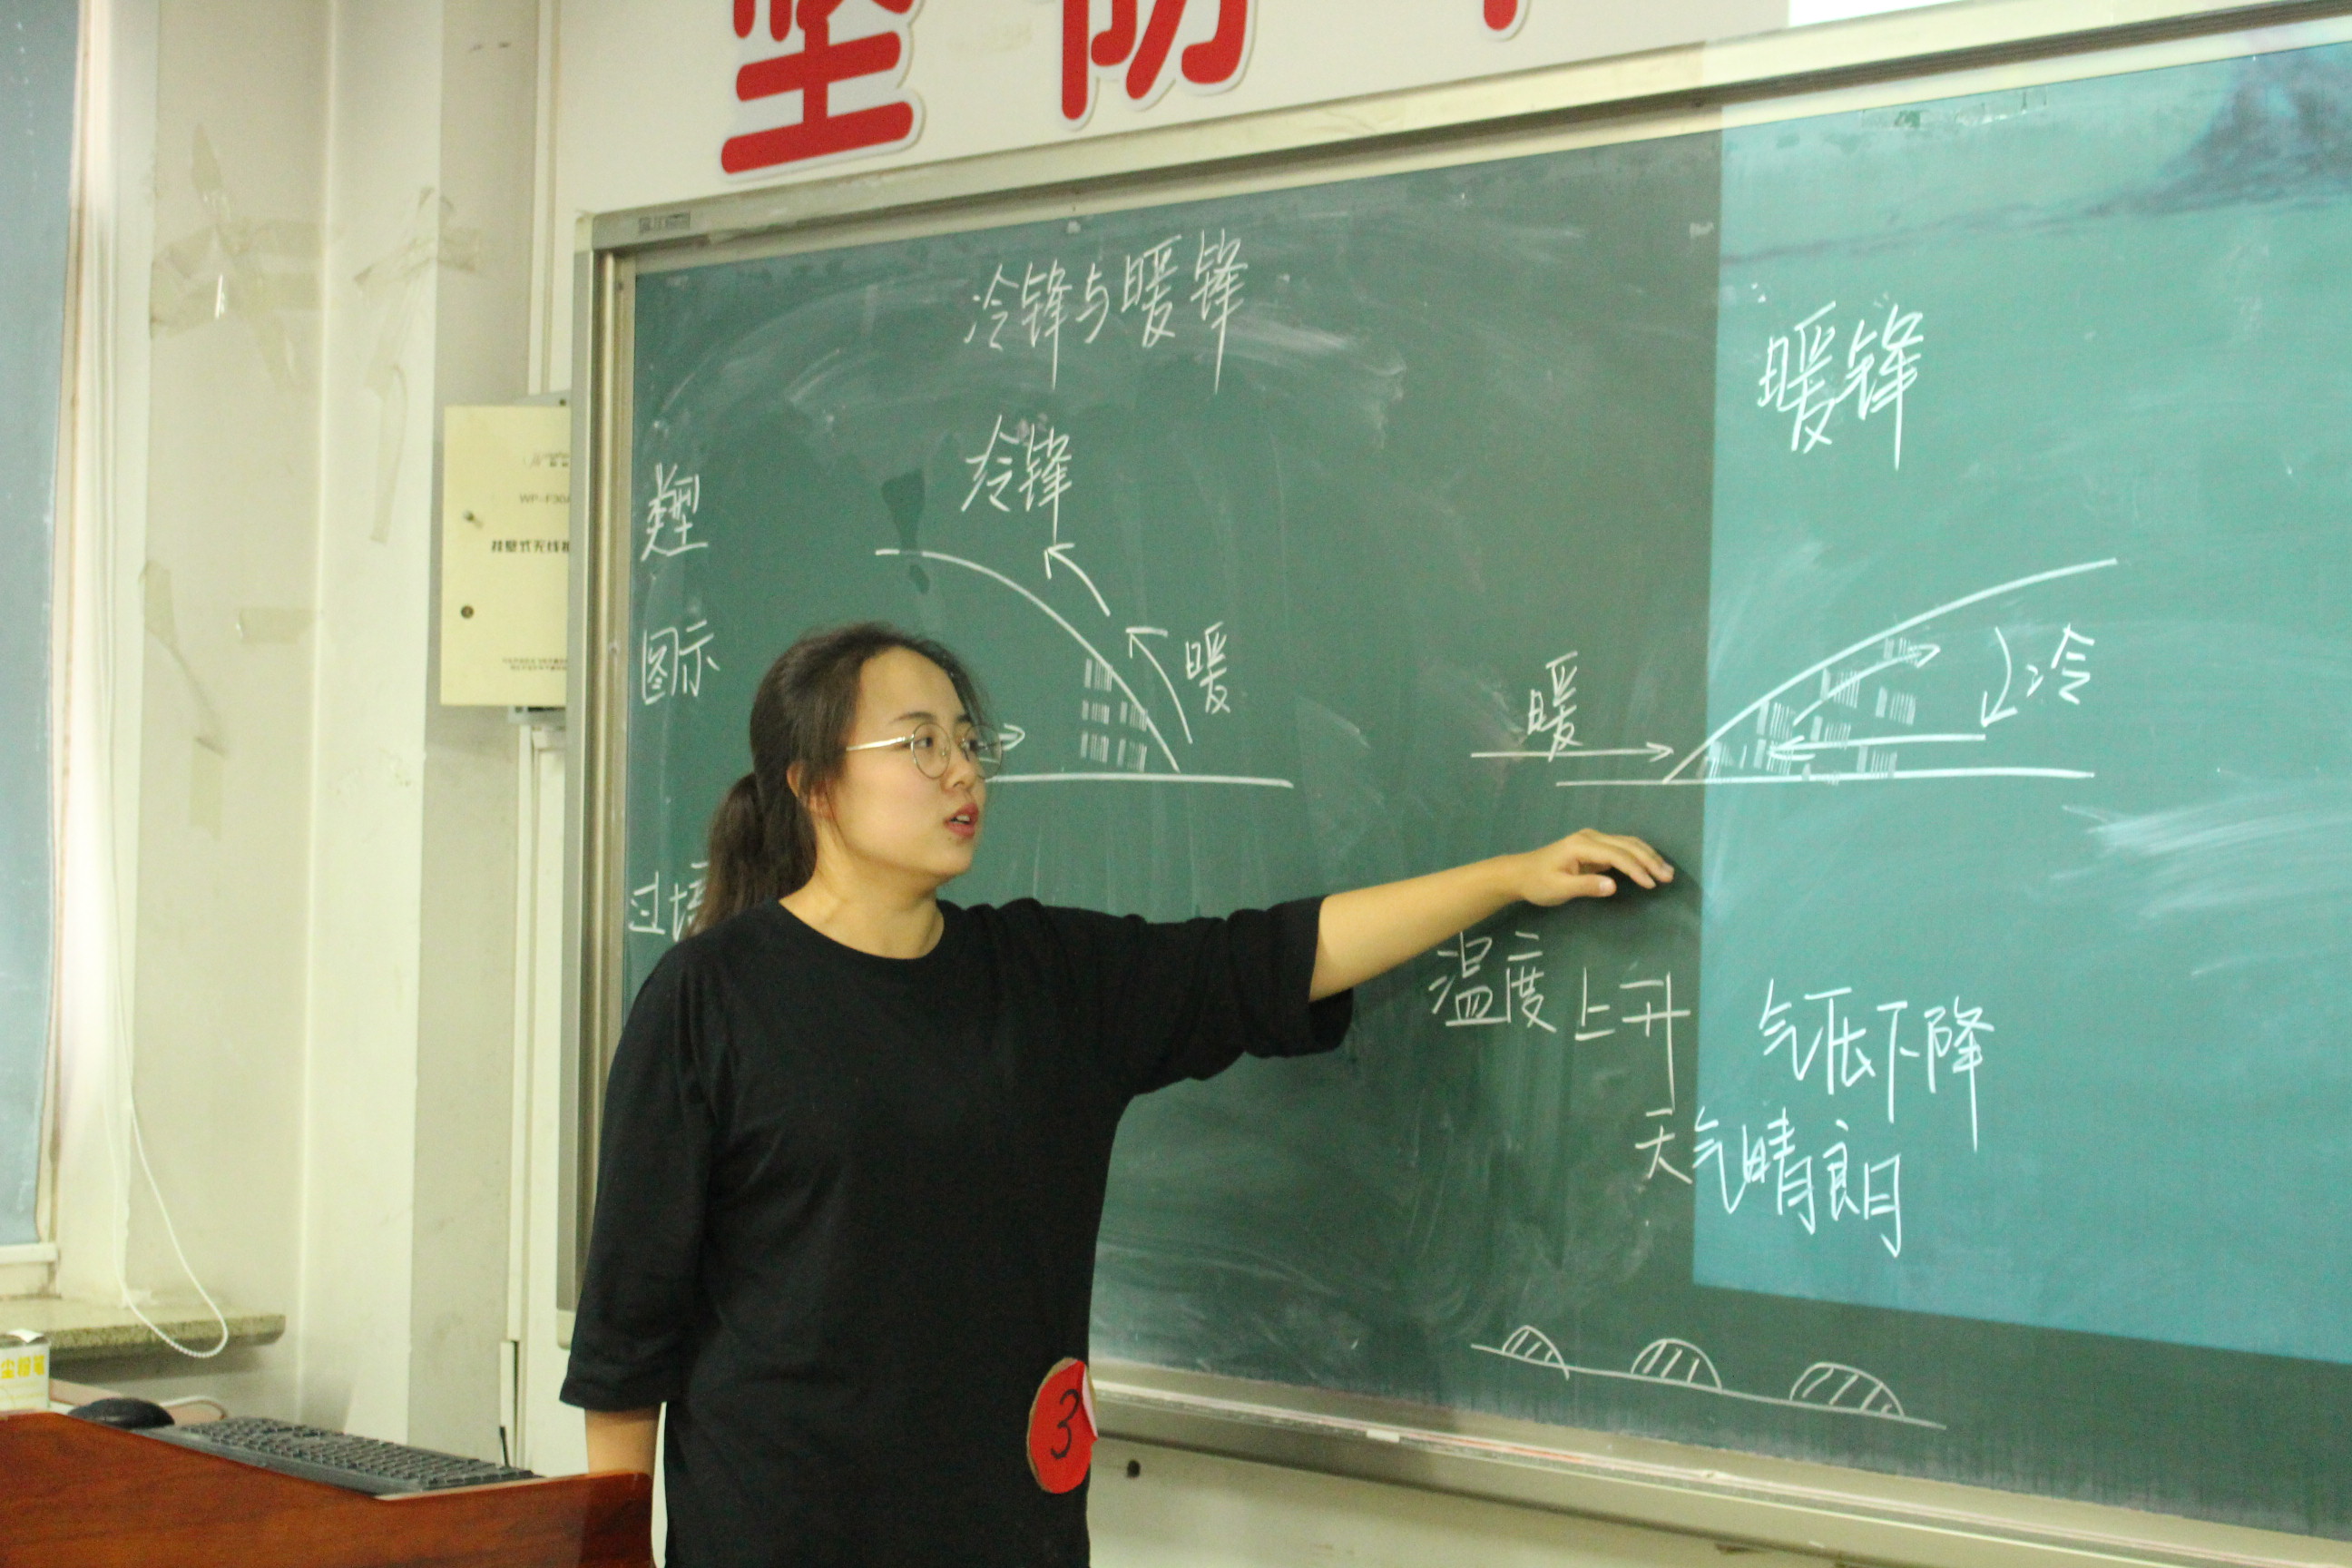 冷锋与暖锋
类型
冷锋
暖锋
图示
暖
暖
冷
过境
温度上升
气压下降
天气晴朗
3
WP-F30A
挂壁式无线